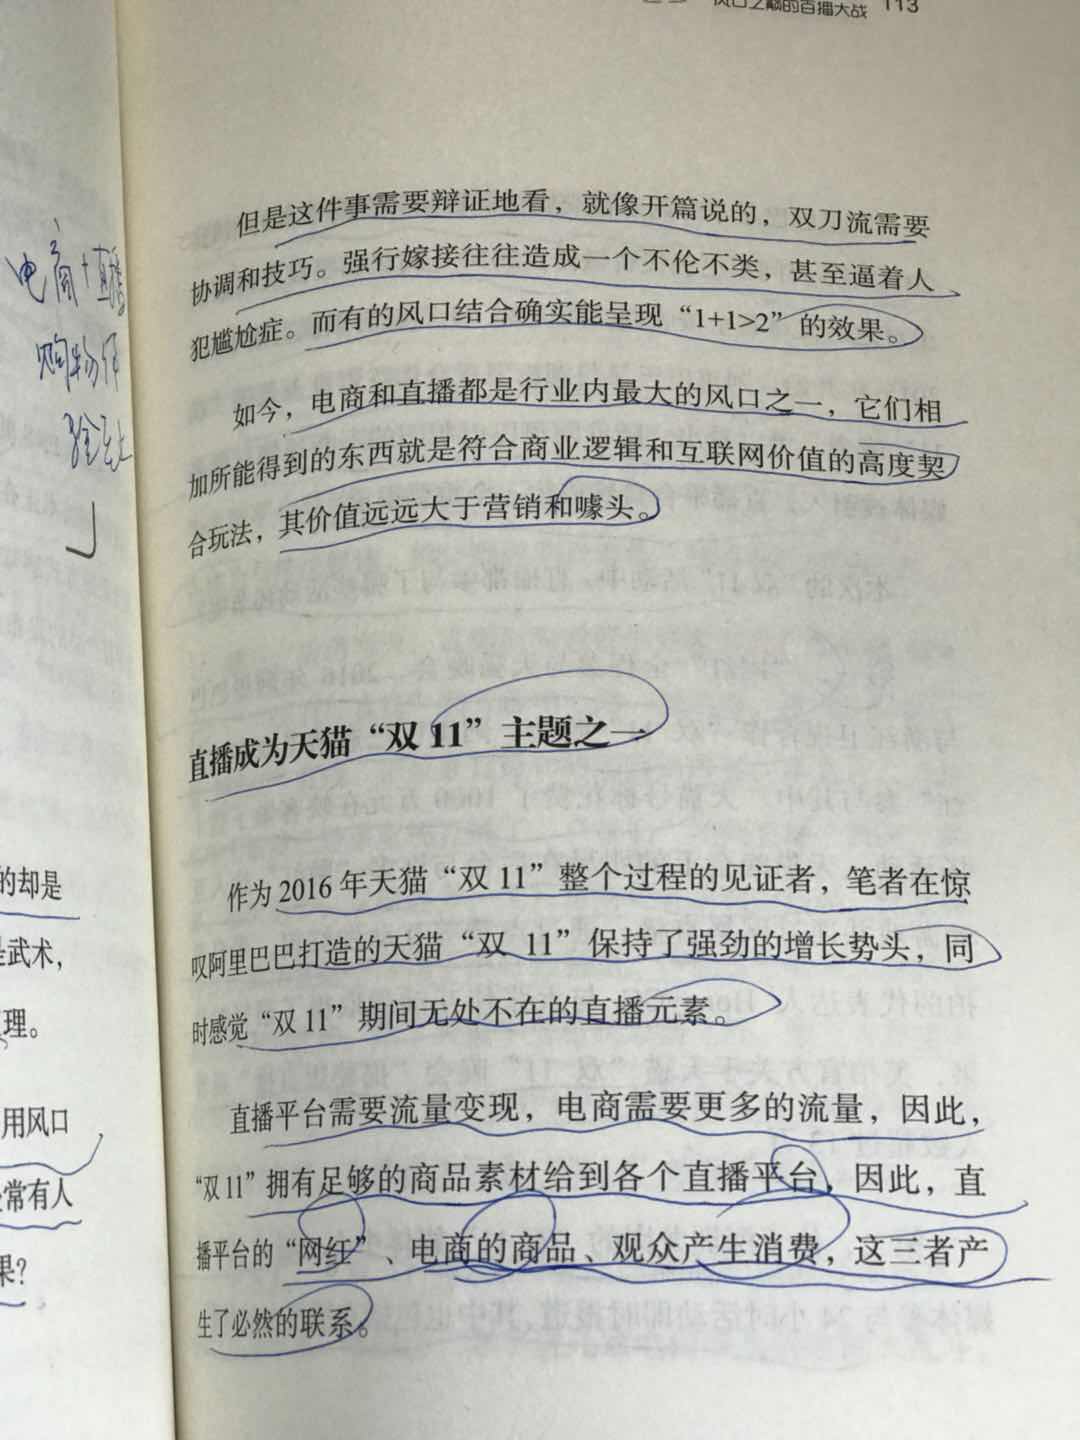 风口之巅的百播大战 113
但是这件事需要辩证地看，就像开篇说的，双刀流需要
协调和技巧。强行嫁接往往造成一个不伦不类，甚至逼着人
犯尴尬症。而有的风口结合确实能呈现“1+1>2”的效果。
如今，电商和直播都是行业内最大的风口之一，它们相
加所能得到的东西就是符合商业逻辑和互联网价值的高度契
合玩法，其价值远远大于营销和噱头。
直播成为天猫“双 11”主题之一
作为 2016 年天猫“双 11”整个过程的见证者，笔者在惊
叹阿里巴巴打造的天猫“双 11”保持了强劲的增长势头，同
时感觉“双 11”期间无处不在的直播元素。
直播平台需要流量变现，电商需要更多的流量，因此，
“双 11”拥有足够的商品素材给到各个直播平台，因此，直
播平台的“网红”、电商的商品、观众产生消费，这三者产
生了必然的联系。
电商+直播
购物体
的却是
是武术，
理。
用风口
常有人
果？